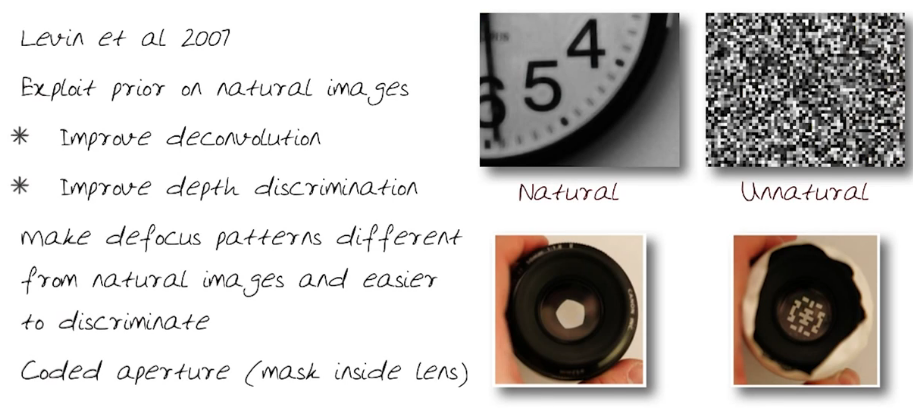 Levin et al 2007
Exploit prior on natural images
* Improve deconvolution
* Improve depth discrimination
make defocus patterns different
from natural images and easier
to discriminate
Coded aperture (mask inside lens)
4
5
6
Natural
Unnatural